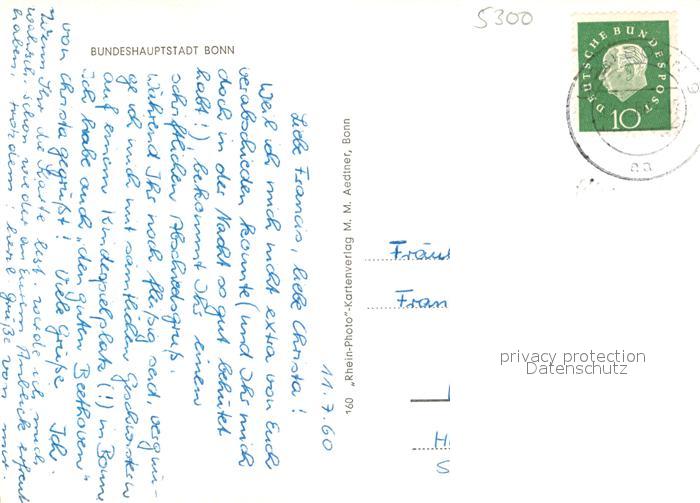 5300
BUNDESHAUPTSTADT BONN
DEUTSCHE BUNDESPOST
10
11.7.60
Liebe Francis, liebe Christa!
Weil ich mich nicht extra von Euch
verabschieden konnte (und Ihr mich
doch in der Nacht so gut behütet
habt!) bekommt Ihr einen
schriftlichen Abschiedsgruß.
Während Ihr noch fleißig seid, vergnü-
ge ich mich mit sämtlichen Geschwistern
auf einem Kinderspielplatz (!) in Bonn
Ich habe auch „den guten Beethoven"
von Christa gegrüßt! Viele Grüße Ich.
Wenn Ihr die Karte lest, werde ich mich
wahrsch. schon wieder an Eurem Anblick erfreut
haben, trotzdem: herzl. Grüße von mir.
160 „Rhein-Photo"-Kartenverlag M. M. Aedtner, Bonn
Fräul
Fran
H
S
privacy protection
Datenschutz